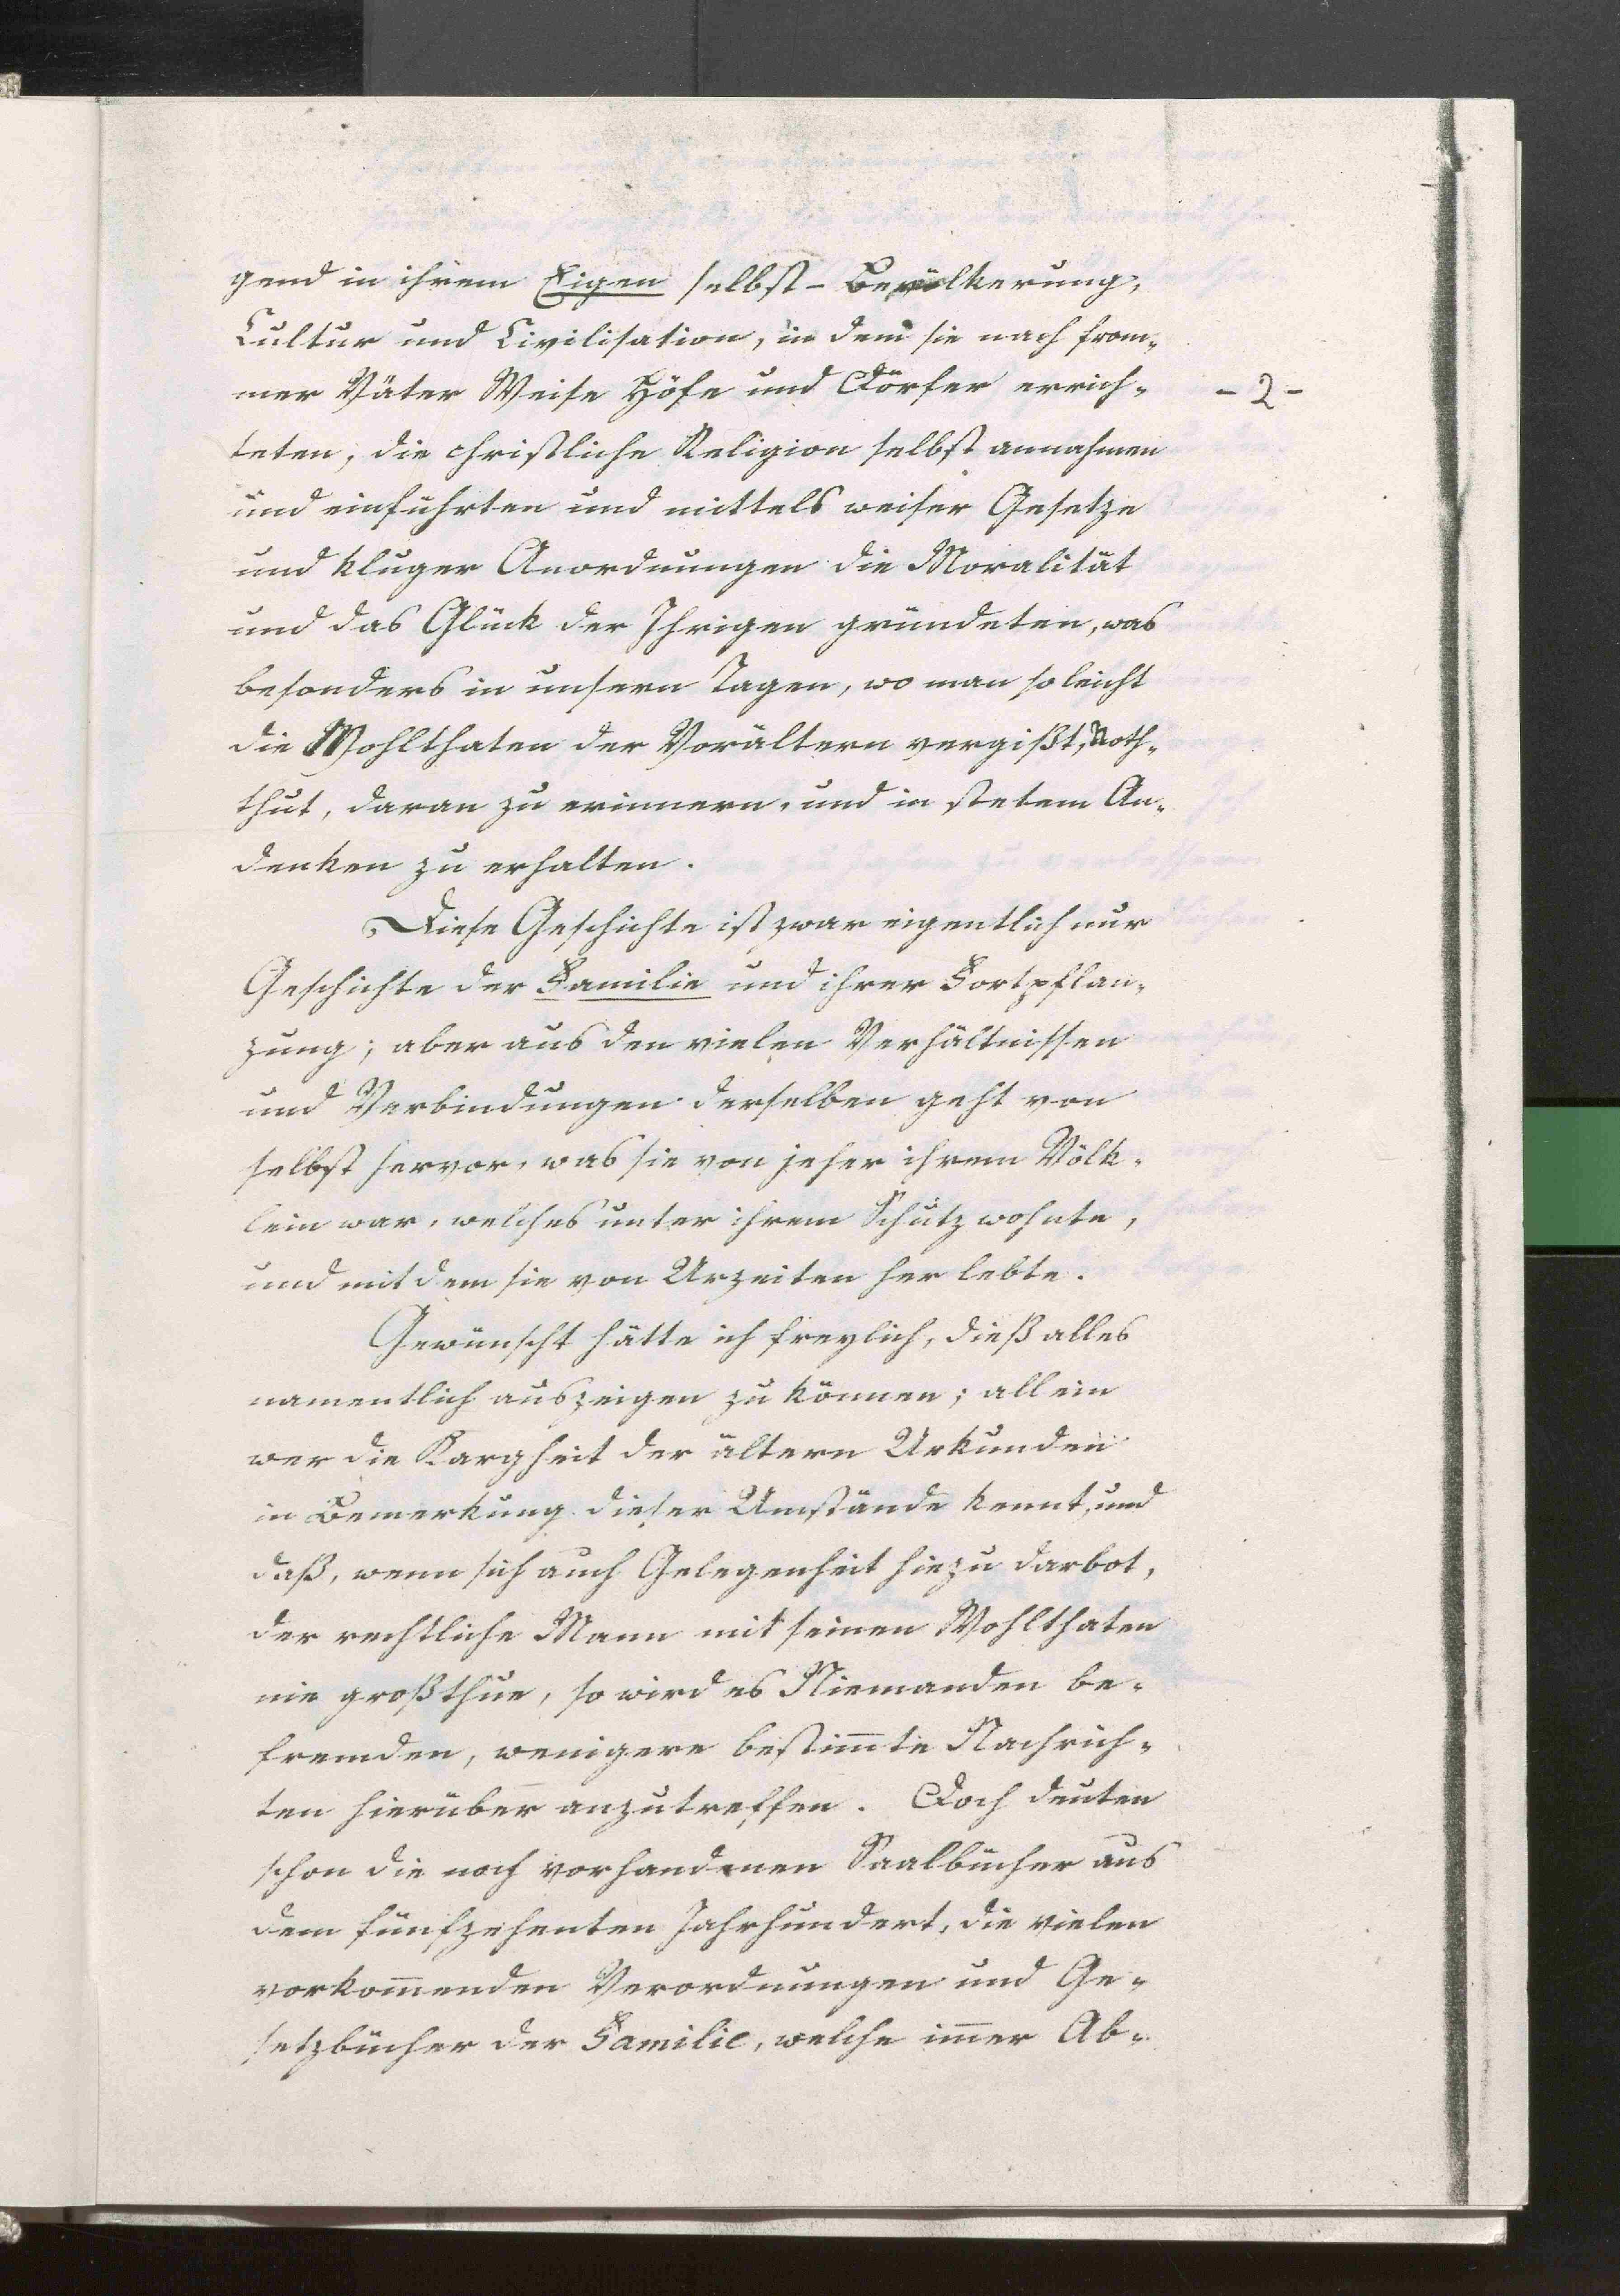 gend in ihrem Eigen selbst - Bevölkerung,
Cultur und Civilisation, in dem sie nach from-
mer Väter Weise Höfe und Dörfer errich-
- 2 -
teten, die christliche Religion selbst annahmen
und einführten und mittels weiser Gesetze
und kluger Anordnungen die Moralität
und das Glück der Ihrigen gründeten, was
besonders in unsern Tagen, wo man so leicht
die Wohlthaten der Vorältern vergißt, Noth-
thut, daran zu erinnern, und in stetem An-
denken zu erhalten.
Diese Geschichte ist zwar eigentlich nur
Geschichte der Familie und ihrer Fortpflan-
zung; aber aus den vielen Verhältnissen
und Verbindungen derselben geht von
selbst hervor, was sie von jeher ihrem Völk-
lein war, welches unter ihrem Schutz wohnte,
und mit dem sie von Urzeiten her lebte.
Gewünscht hätte ich freylich, dieß alles
namentlich auszeigen zu können; allein
wer die Kargheit der ältern Urkunden
in Bemerkung dieser Umstände kennt, und
daß, wenn sich auch Gelegenheit hiezu darbot,
der rechtliche Mann mit seinen Wohlthaten
nie großthue, so wird es Niemanden be-
fremden, wenigere bestim̄te Nachrich-
ten hierüber anzutreffen. Doch deuten
schon die noch vorhandenen Saalbücher aus
dem fünfzehenten Jahrhundert, die vielen
vorkom̄enden Verordnungen und Ge-
setzbücher der Familie, welche im̄er Ab-